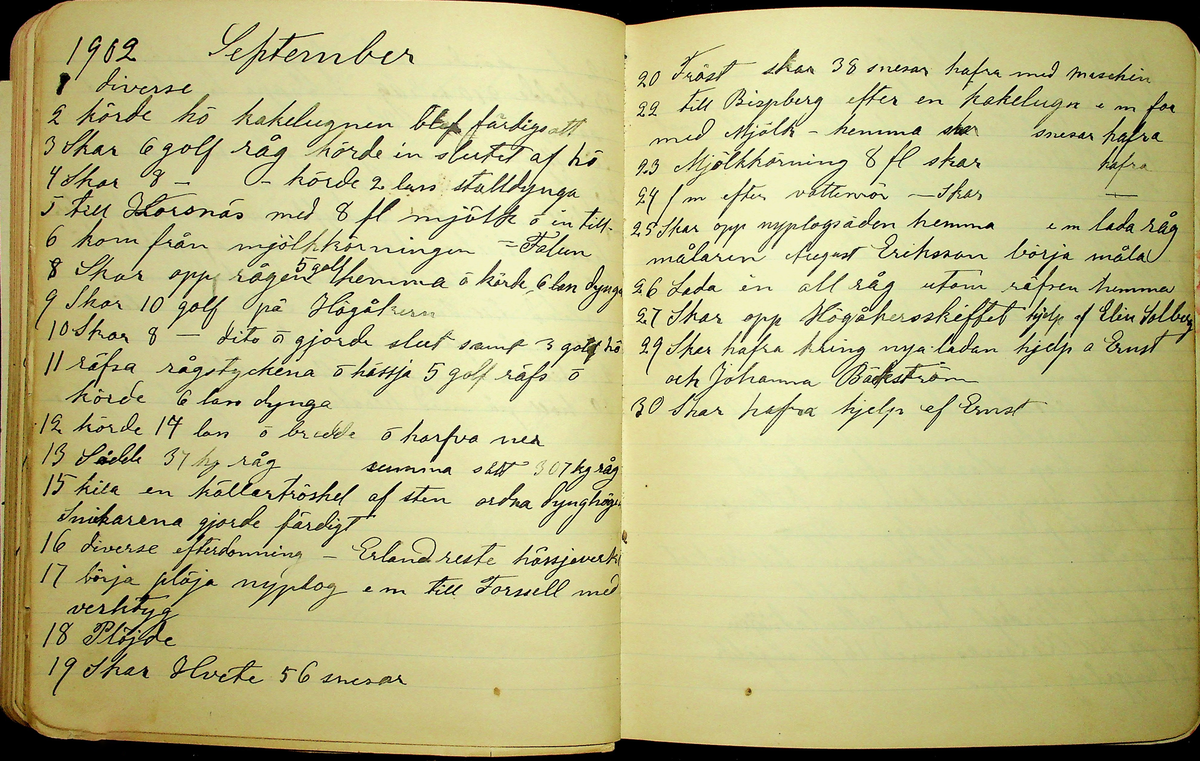 1902 September
1 diverse
2 körde hö kakelugnen blef färdigsatt
3 Skar 6 golf råg körde in slutet af hö
4 Skar 8 — — körde 2 lass stalldynga
5 till Korsnäs med 8 fl mjölk ō in till-
6 kom från mjölkkörningen = Falun
8 Skar opp rågen 5 golf hemma ō körde 6 lass dynga
9 Skar 10 golf på Högåkern
10 Skar 8 — dito ō gjorde slut samt 3 golf hö
11 räfsa rågstyckena ō hässja 5 golf räfs ō
körde 6 lass dynga
12 körde 14 lass ō bredde ō harfva ner
13 Sådde 37 kg råg summa sått 307 kg råg
15 kila en källartröskel af sten ordna dynghögen
Snickarena gjorde färdigt
16 diverse efterdonning — Erland reste hässjeverke
17 börja plöja nyplog e m till Forssell med
verktyg
18 Plöjde
19 Skar Hvete 56 snesar
20 Fröst skar 38 snesar hafra med maschin
22 till Bispberg efter en kakelugn e m for
med Mjölk — hemma skar snesar hafra
23 Mjölkkörning 8 fl skar hafra
24 f m efter vattenrör — skar —
25 Skar opp nyplogsäden hemma e m lada råg
målaren August Eriksson börja måla
26 Lada in all råg utom räfsen hemma
27 Skar opp Högåkersskiftet hjelp af Elin Solberg
29 Skar hafra kring nya ladan hjelp a Ernst
och Johanna Bäckström
30 Skar hafra hjelp af Ernst